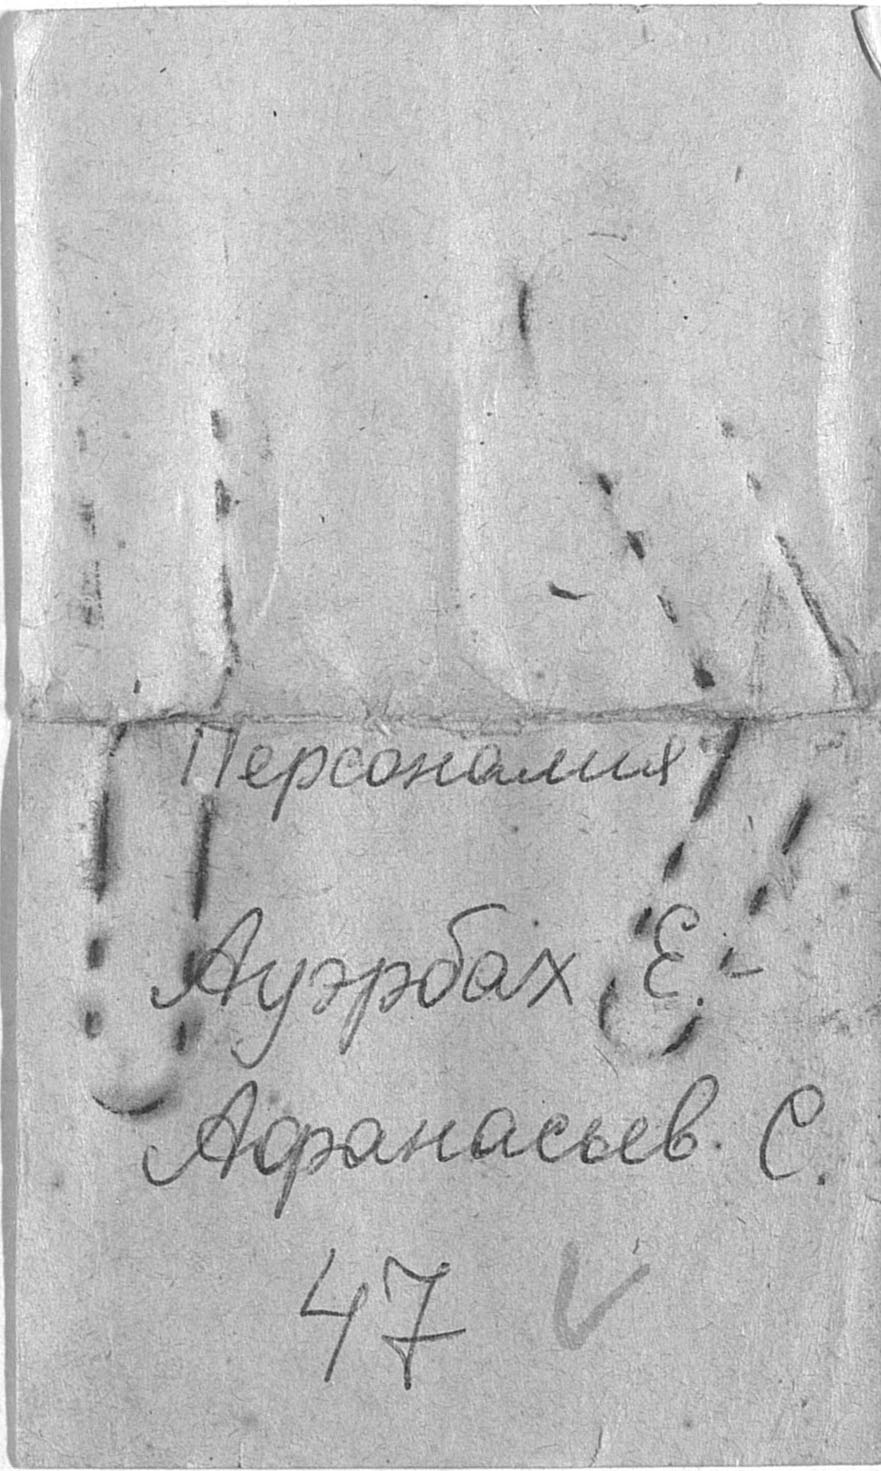 Персоналия
Ауэрбах Е. –
Афанасьев. С.
47 ✓